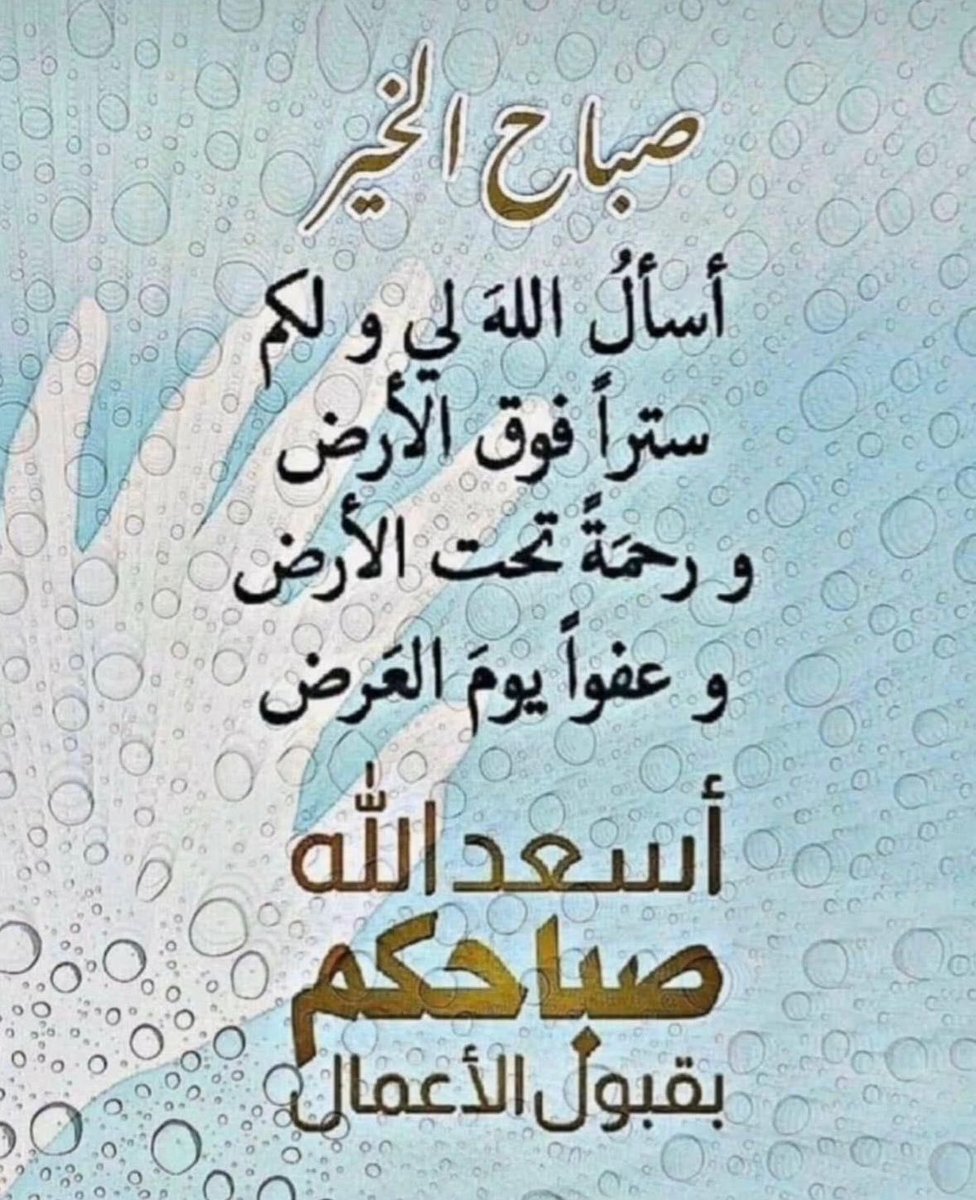 صباح الخير
أسألُ اللهَ لي و لكم
ستراً فوق الأرض
و رحمَةً تحت الأرض
و عفواً يومَ العَرض
أسعد الله
صباحكم
بقبول الأعمال